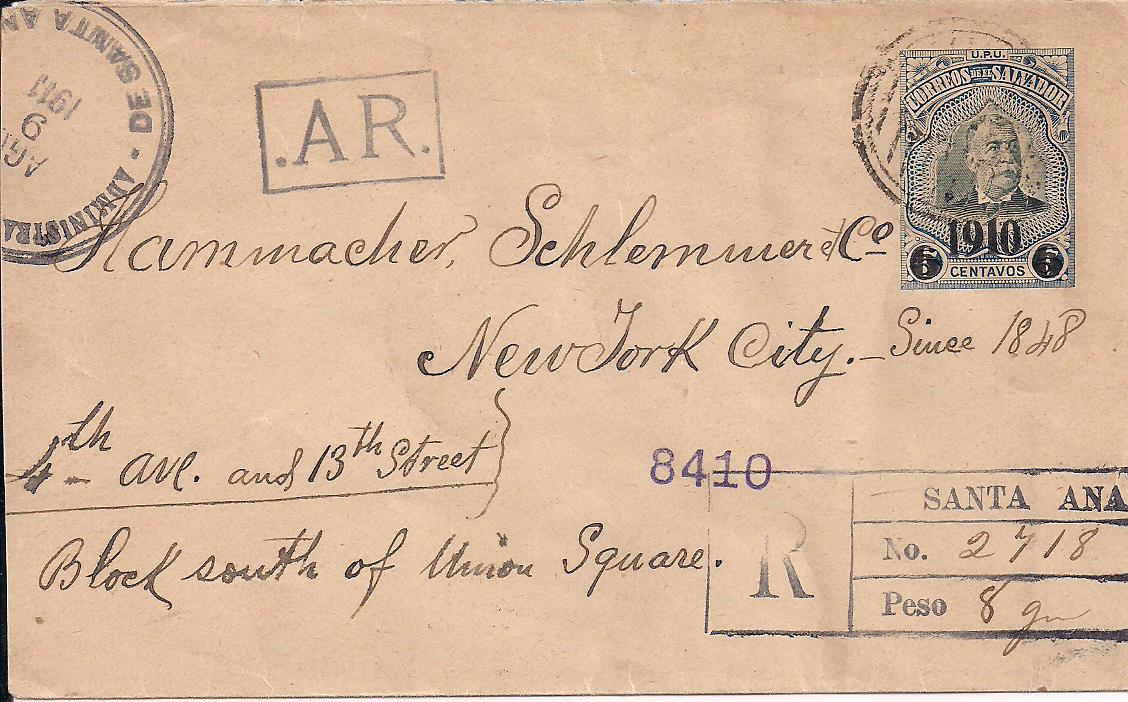 ADMINISTRA
DE SANTA AN
9
1911
.AR.
U.P.U.
CORREOS DE EL SALVADOR
1910
6 CENTAVOS 6
Hammacher, Schlemmer & Co
New York City. - Since 1848
4th Ave. and 13th Street
Block south of Union Square.
8410
R
SANTA ANA
No. 2718
Peso 8 gr